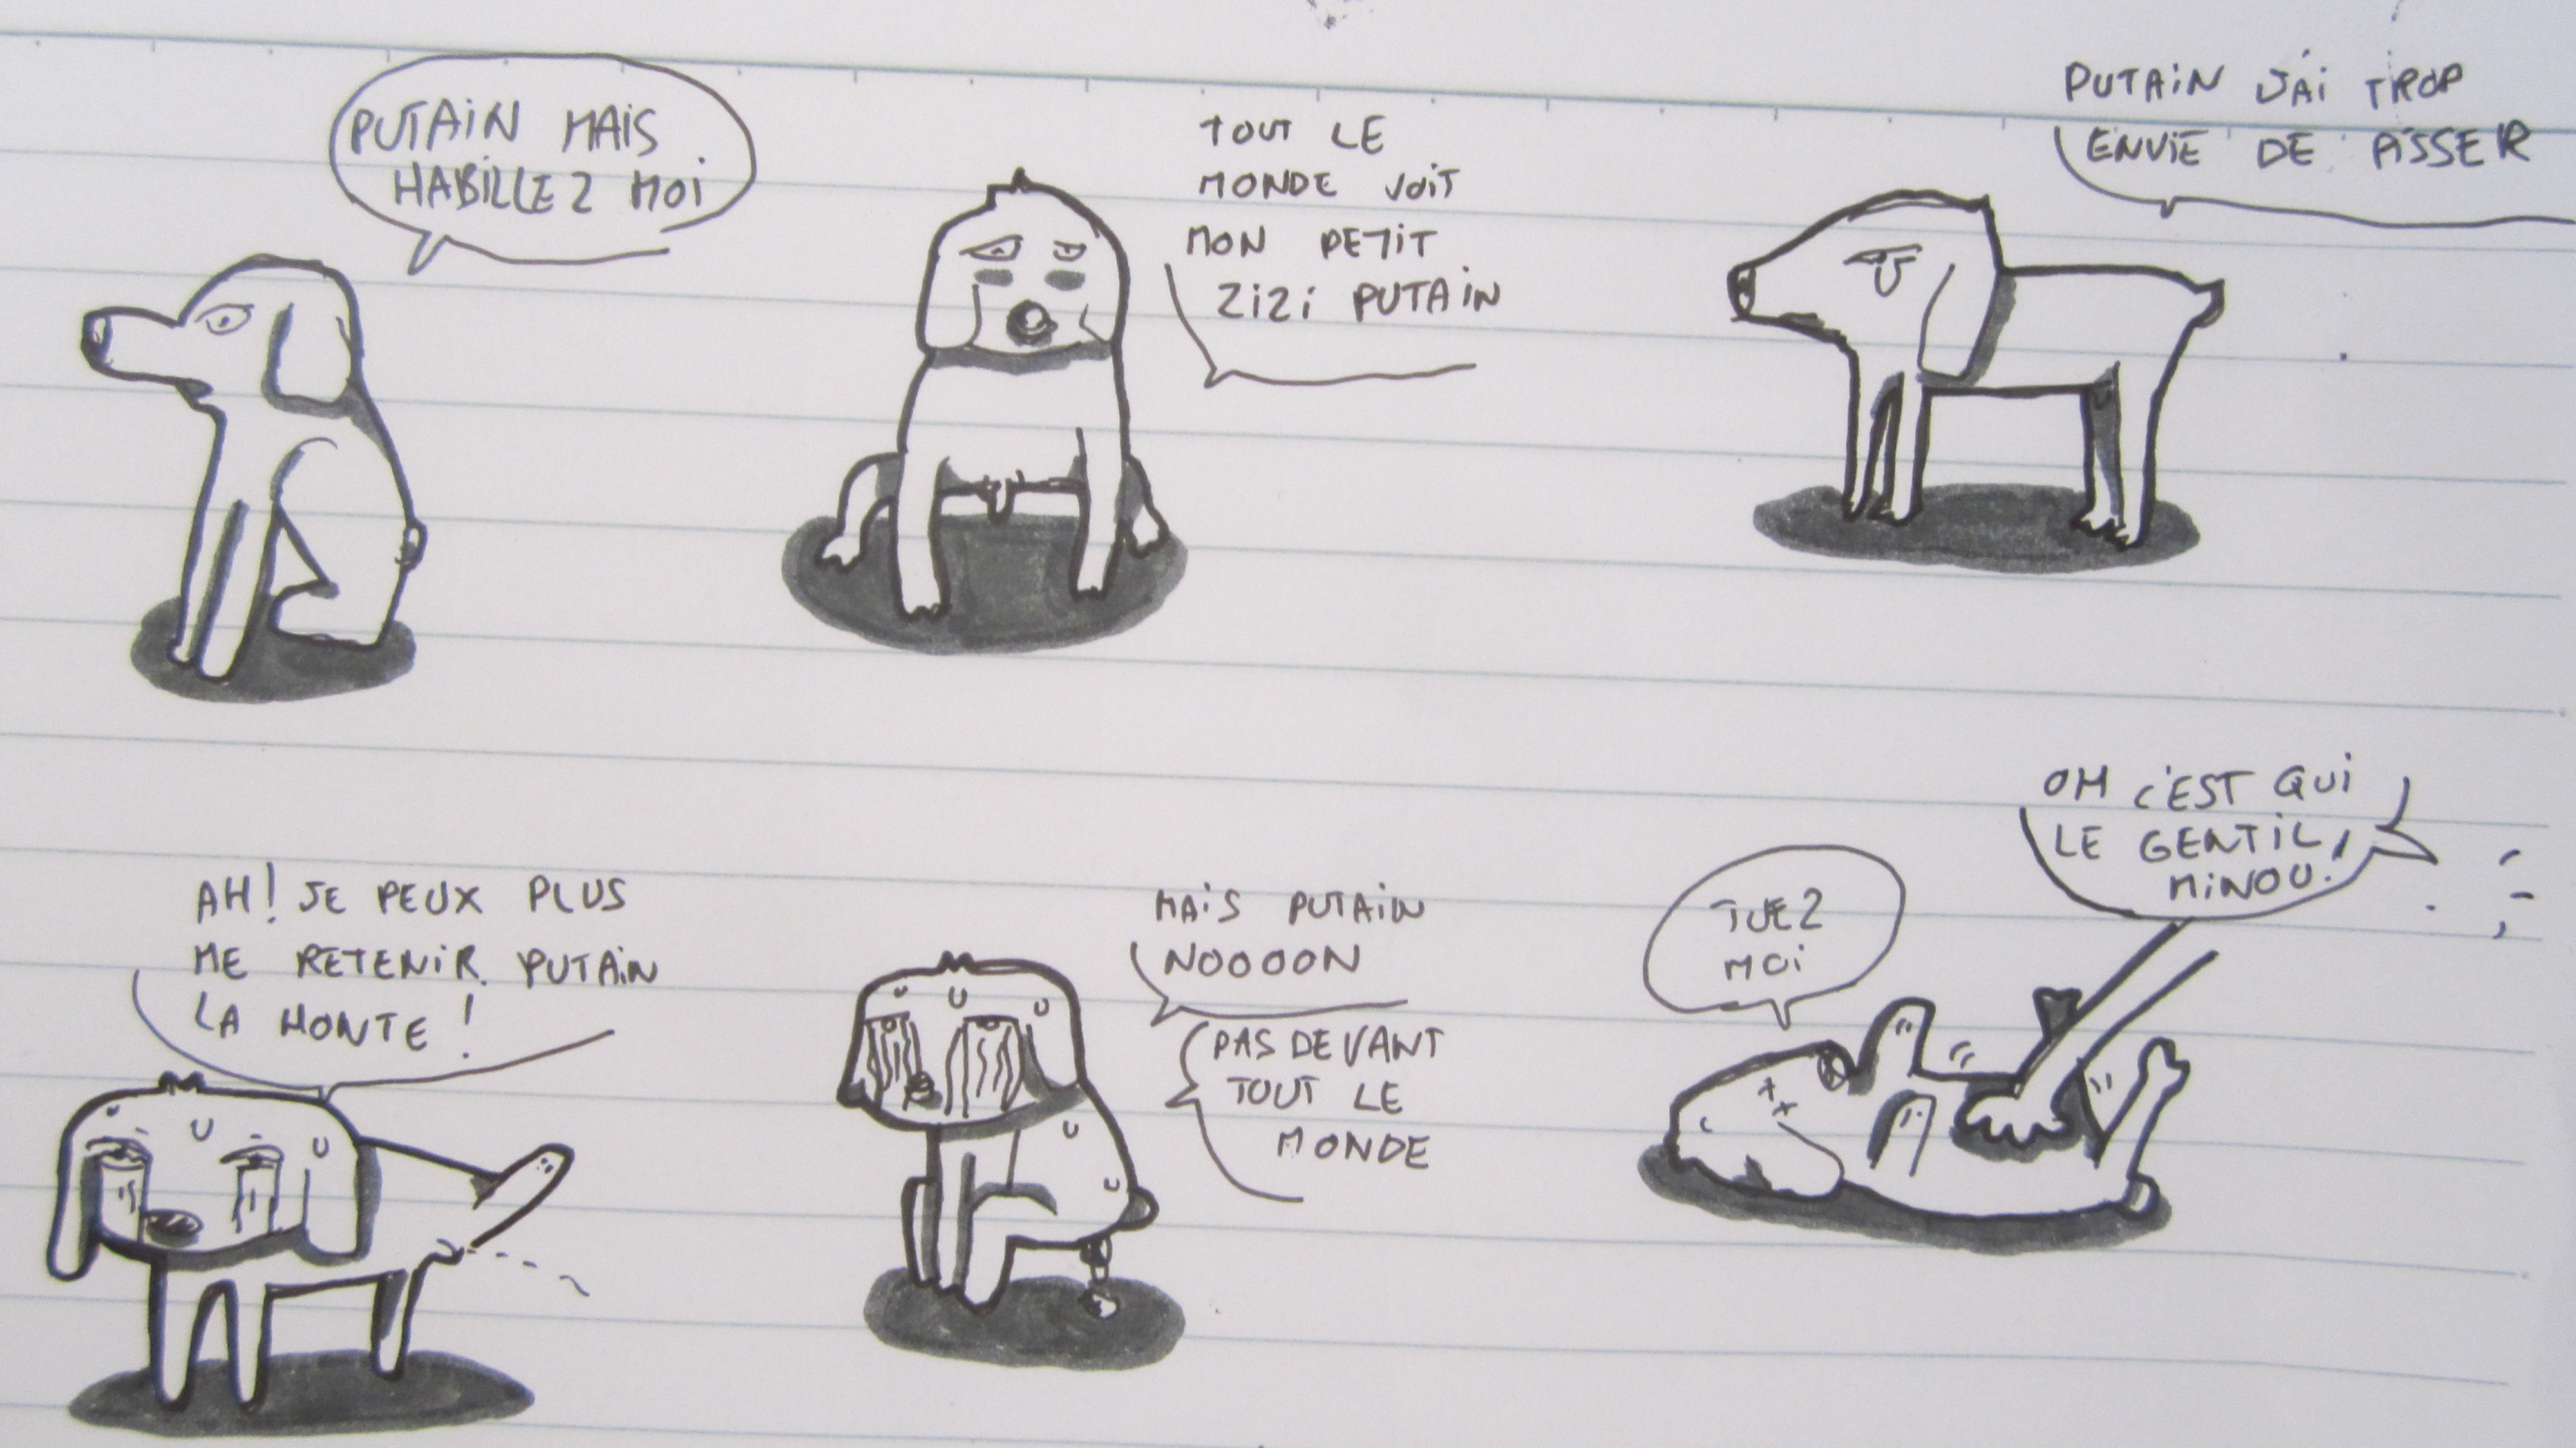 PUTAIN MAIS
HABILLEZ MOI
TOUT LE
MONDE VOIT
MON PETIT
ZIZI PUTAIN
PUTAIN J'AI TROP
ENVIE DE PISSER
AH! JE PEUX PLUS
ME RETENIR PUTAIN
LA HONTE!
MAIS PUTAIN
NOOOON
PAS DEVANT
TOUT LE
MONDE
TUEZ
MOI
OH C'EST QUI
LE GENTIL
MINOU!